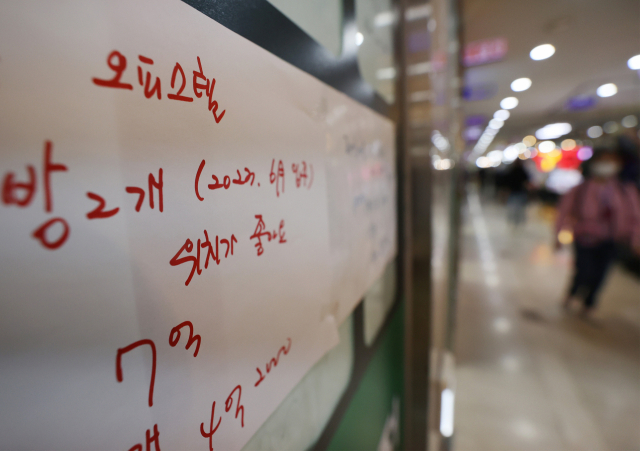 오피스텔
방 2개 (2023. 6월 입주)
위치가 좋아요
7억
4억 2000